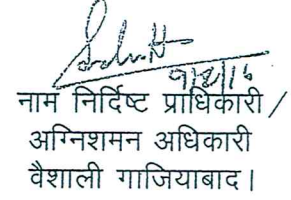 9/2/16
नाम निर्दिष्ट प्राधिकारी /
अग्निशमन अधिकारी
वैशाली गाजियाबाद।